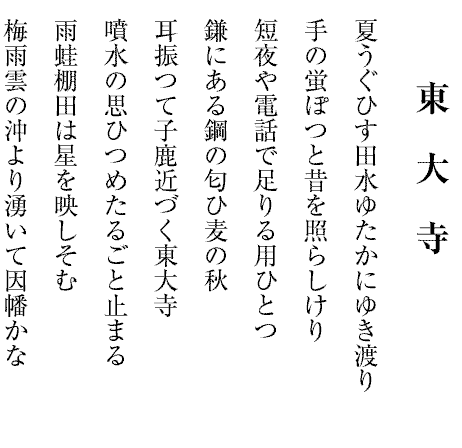 東大寺
夏うぐひす田水ゆたかにゆき渡り
手の蛍ぽつと昔を照らしけり
短夜や電話で足りる用ひとつ
鎌にある鋼の匂ひ麦の秋
耳振つて子鹿近づく東大寺
噴水の思ひつめたるごと止まる
雨蛙棚田は星を映しそむ
梅雨雲の沖より湧いて因幡かな